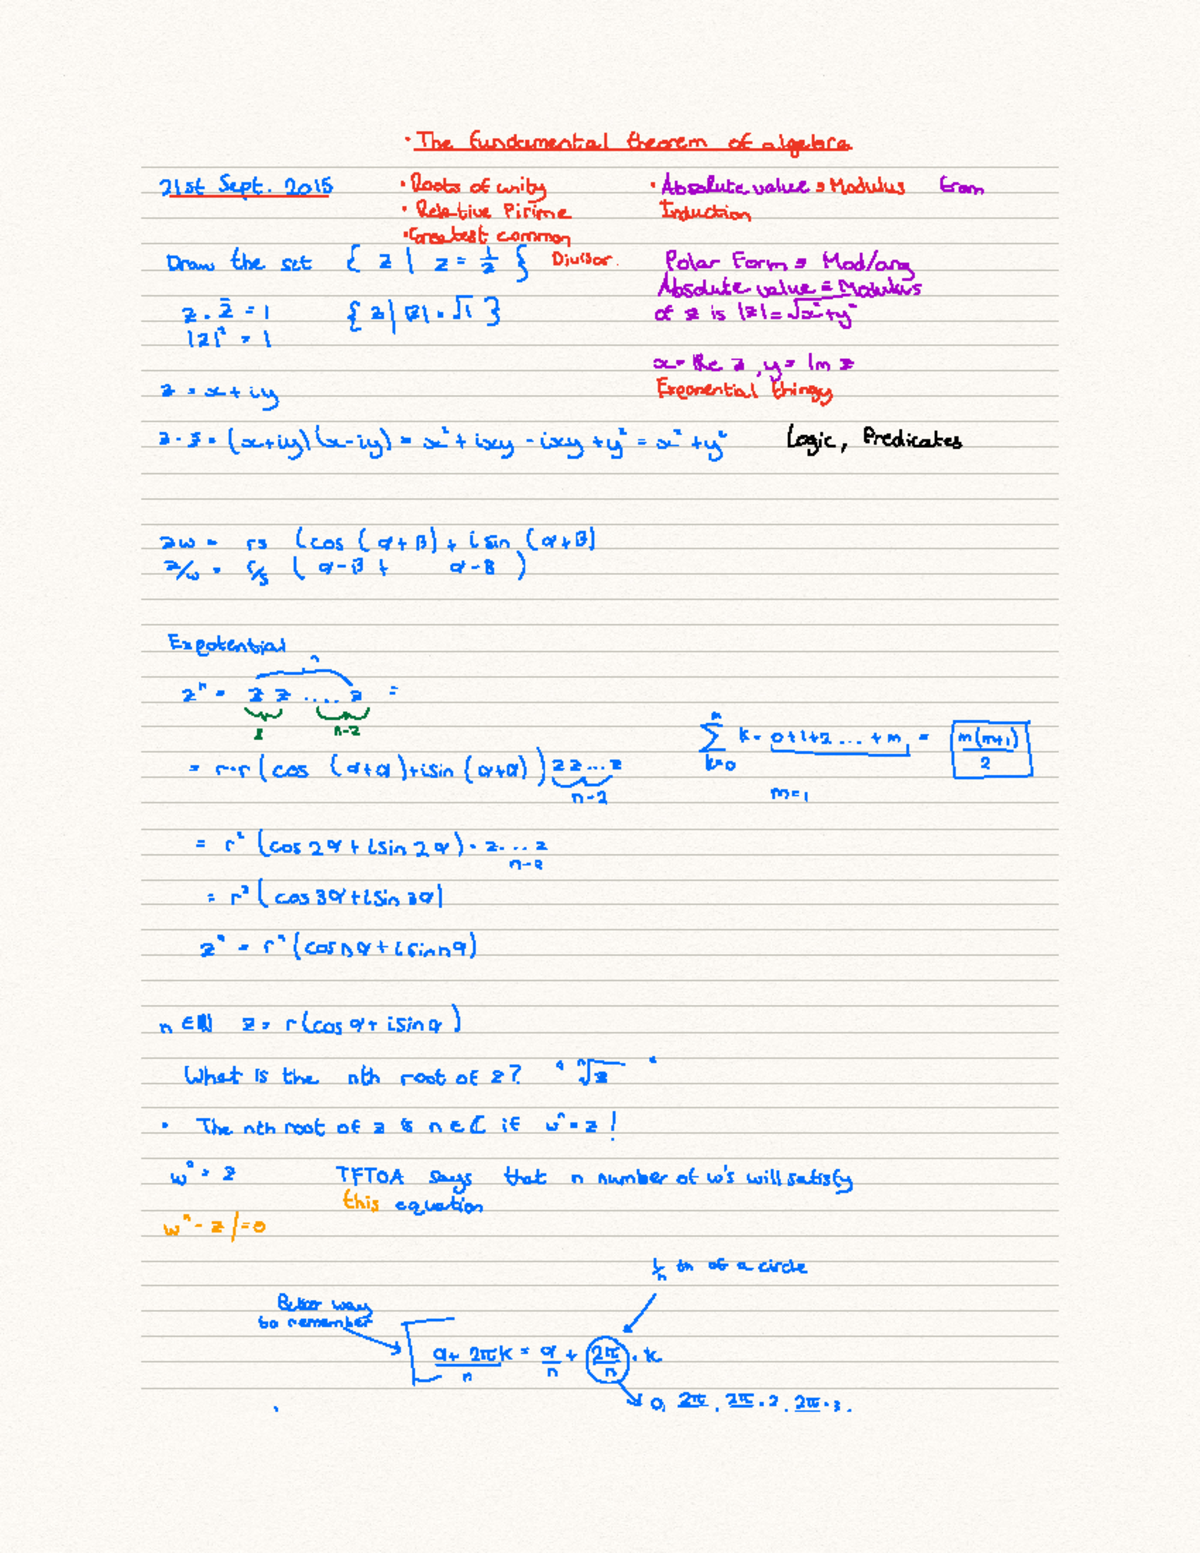 · The fundamental theorem of algebra
21st Sept. 2015
· Roots of unity
· Relative Pirime
· Greatest common
Divisor.
· Absolute value = Modulus
Induction
Draw the set { z | z = 1/z̄ }
z . z̄ = 1 { z | |z| = √1 }
|z|² = 1
z = x + iy
Polar Form = Mod/arg
Absolute value = Modulus
of z is |z| = √x²+y²
x = Re z , y = Im z
Exponential thingy
z · z̄ = (x+iy)(x-iy) = x² + ixy - ixy + y² = x² + y²
Logic, Predicates
zw = rs (cos (α+β) + i sin (α+β)
z/w = r/s ( α-β + α-β )
Expotential
n
zⁿ = z z .... z =
2 n-2
= r·r (cos (α+α)+isin (α+α)) z z ... z
n-2
n
∑ k = 0+1+2 ... + m = m(m+1)/2
k=0
m=1
= r² (cos 2α + isin 2α) · z. ... z
n-2
= r³ (cos 3α+isin 3α)
zⁿ = rⁿ (cos nα + isin nα)
n ∈ ℕ z = r(cos α + isin α)
What is the nth root of z? " ⁿ√z "
· The nth root of z is n ∈ ℂ if wⁿ = z !
wⁿ = z
TFTOA says that n number of w's will satisfy
this equation
wⁿ - z /=0
1/n th of a circle
Better way
to remember
α+ 2πk / n = α/n + 2π/n · k
0, 2π, 2π·2, 2π·3.